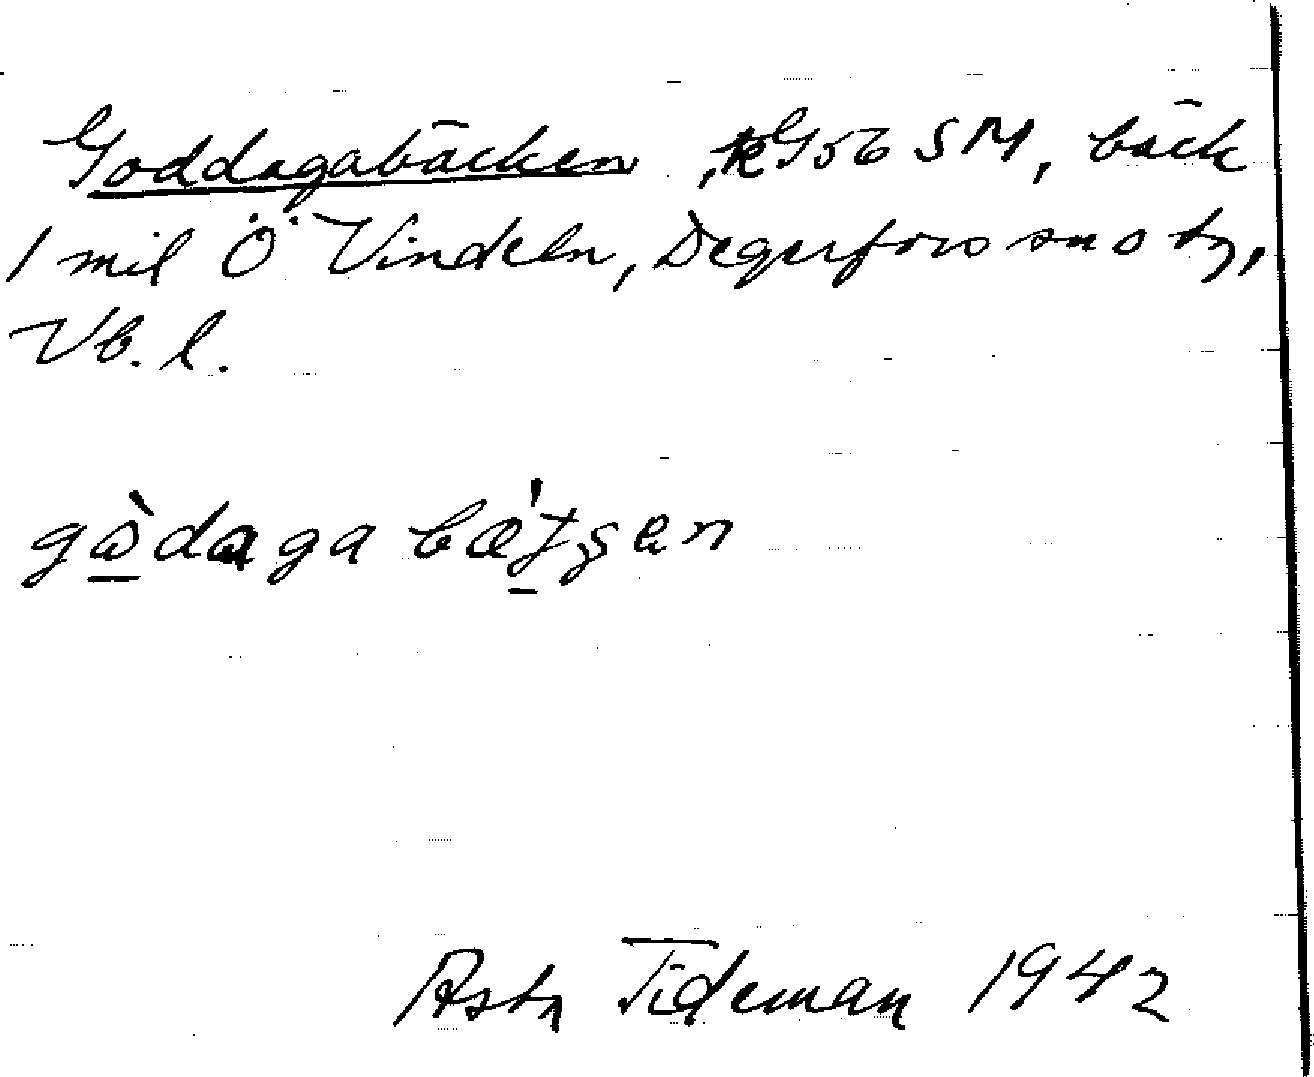 Goddagabäcken, kG56 SM, bäck
1 mil Ö Vindeln, Degerfors sn o tg,
Vb. l.
Asta Tideman 1942